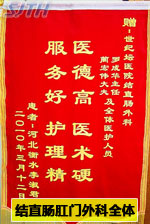 SJTH
赠:世纪坛医院结直肠外科
罗成华主任
蔺宏伟大夫及全体医护人员
医德高 医术硬
服务好 护理精
患者:河北衡水李淑君
二〇一〇年三月十二日
结直肠肛门外科全体